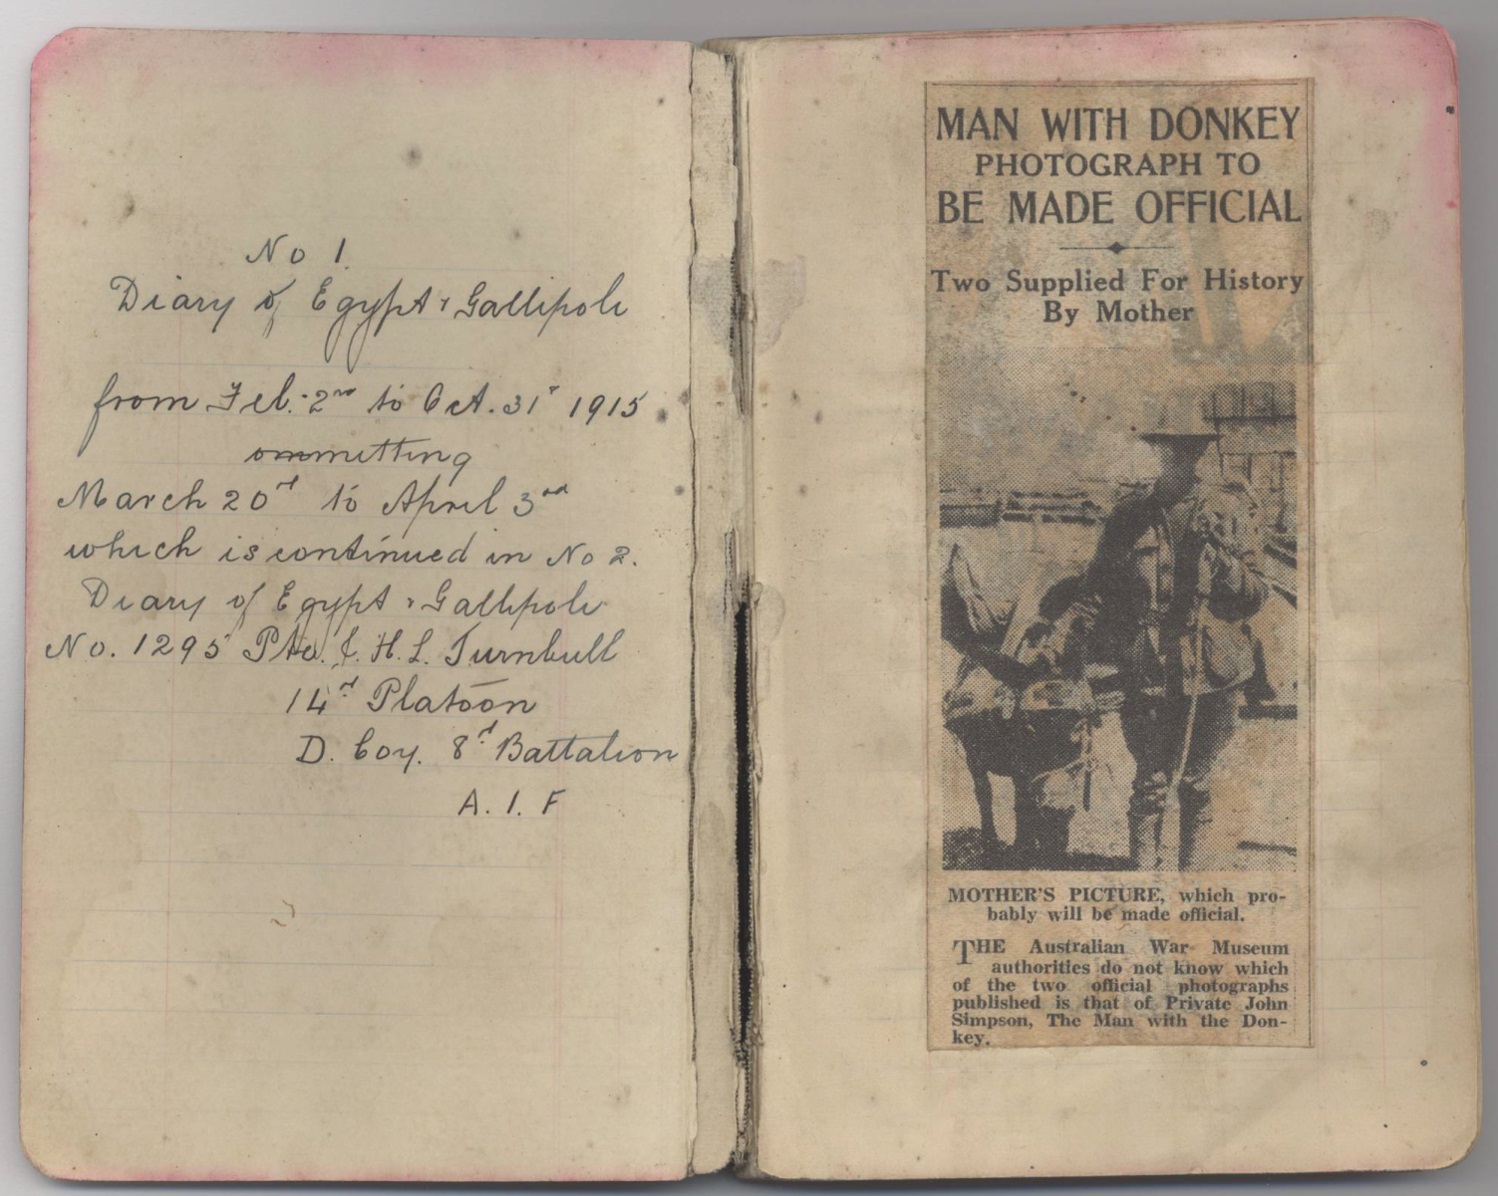 No 1.
Diary of Egypt & Gallipoli
from Feb. 2nd to Oct. 31st 1915
ommitting
March 20th to April 3rd
which is continued in No 2.
Diary of Egypt & Gallipoli
No. 1295 Pte. J. H. L. Turnbull
14th Platoon
D. Coy. 8th Battalion
A. I. F
MAN WITH DONKEY
PHOTOGRAPH TO
BE MADE OFFICIAL
Two Supplied For History
By Mother
MOTHER'S PICTURE, which pro-
bably will be made official.
THE Australian War Museum
authorities do not know which
of the two official photographs
published is that of Private John
Simpson, The Man with the Don-
key.